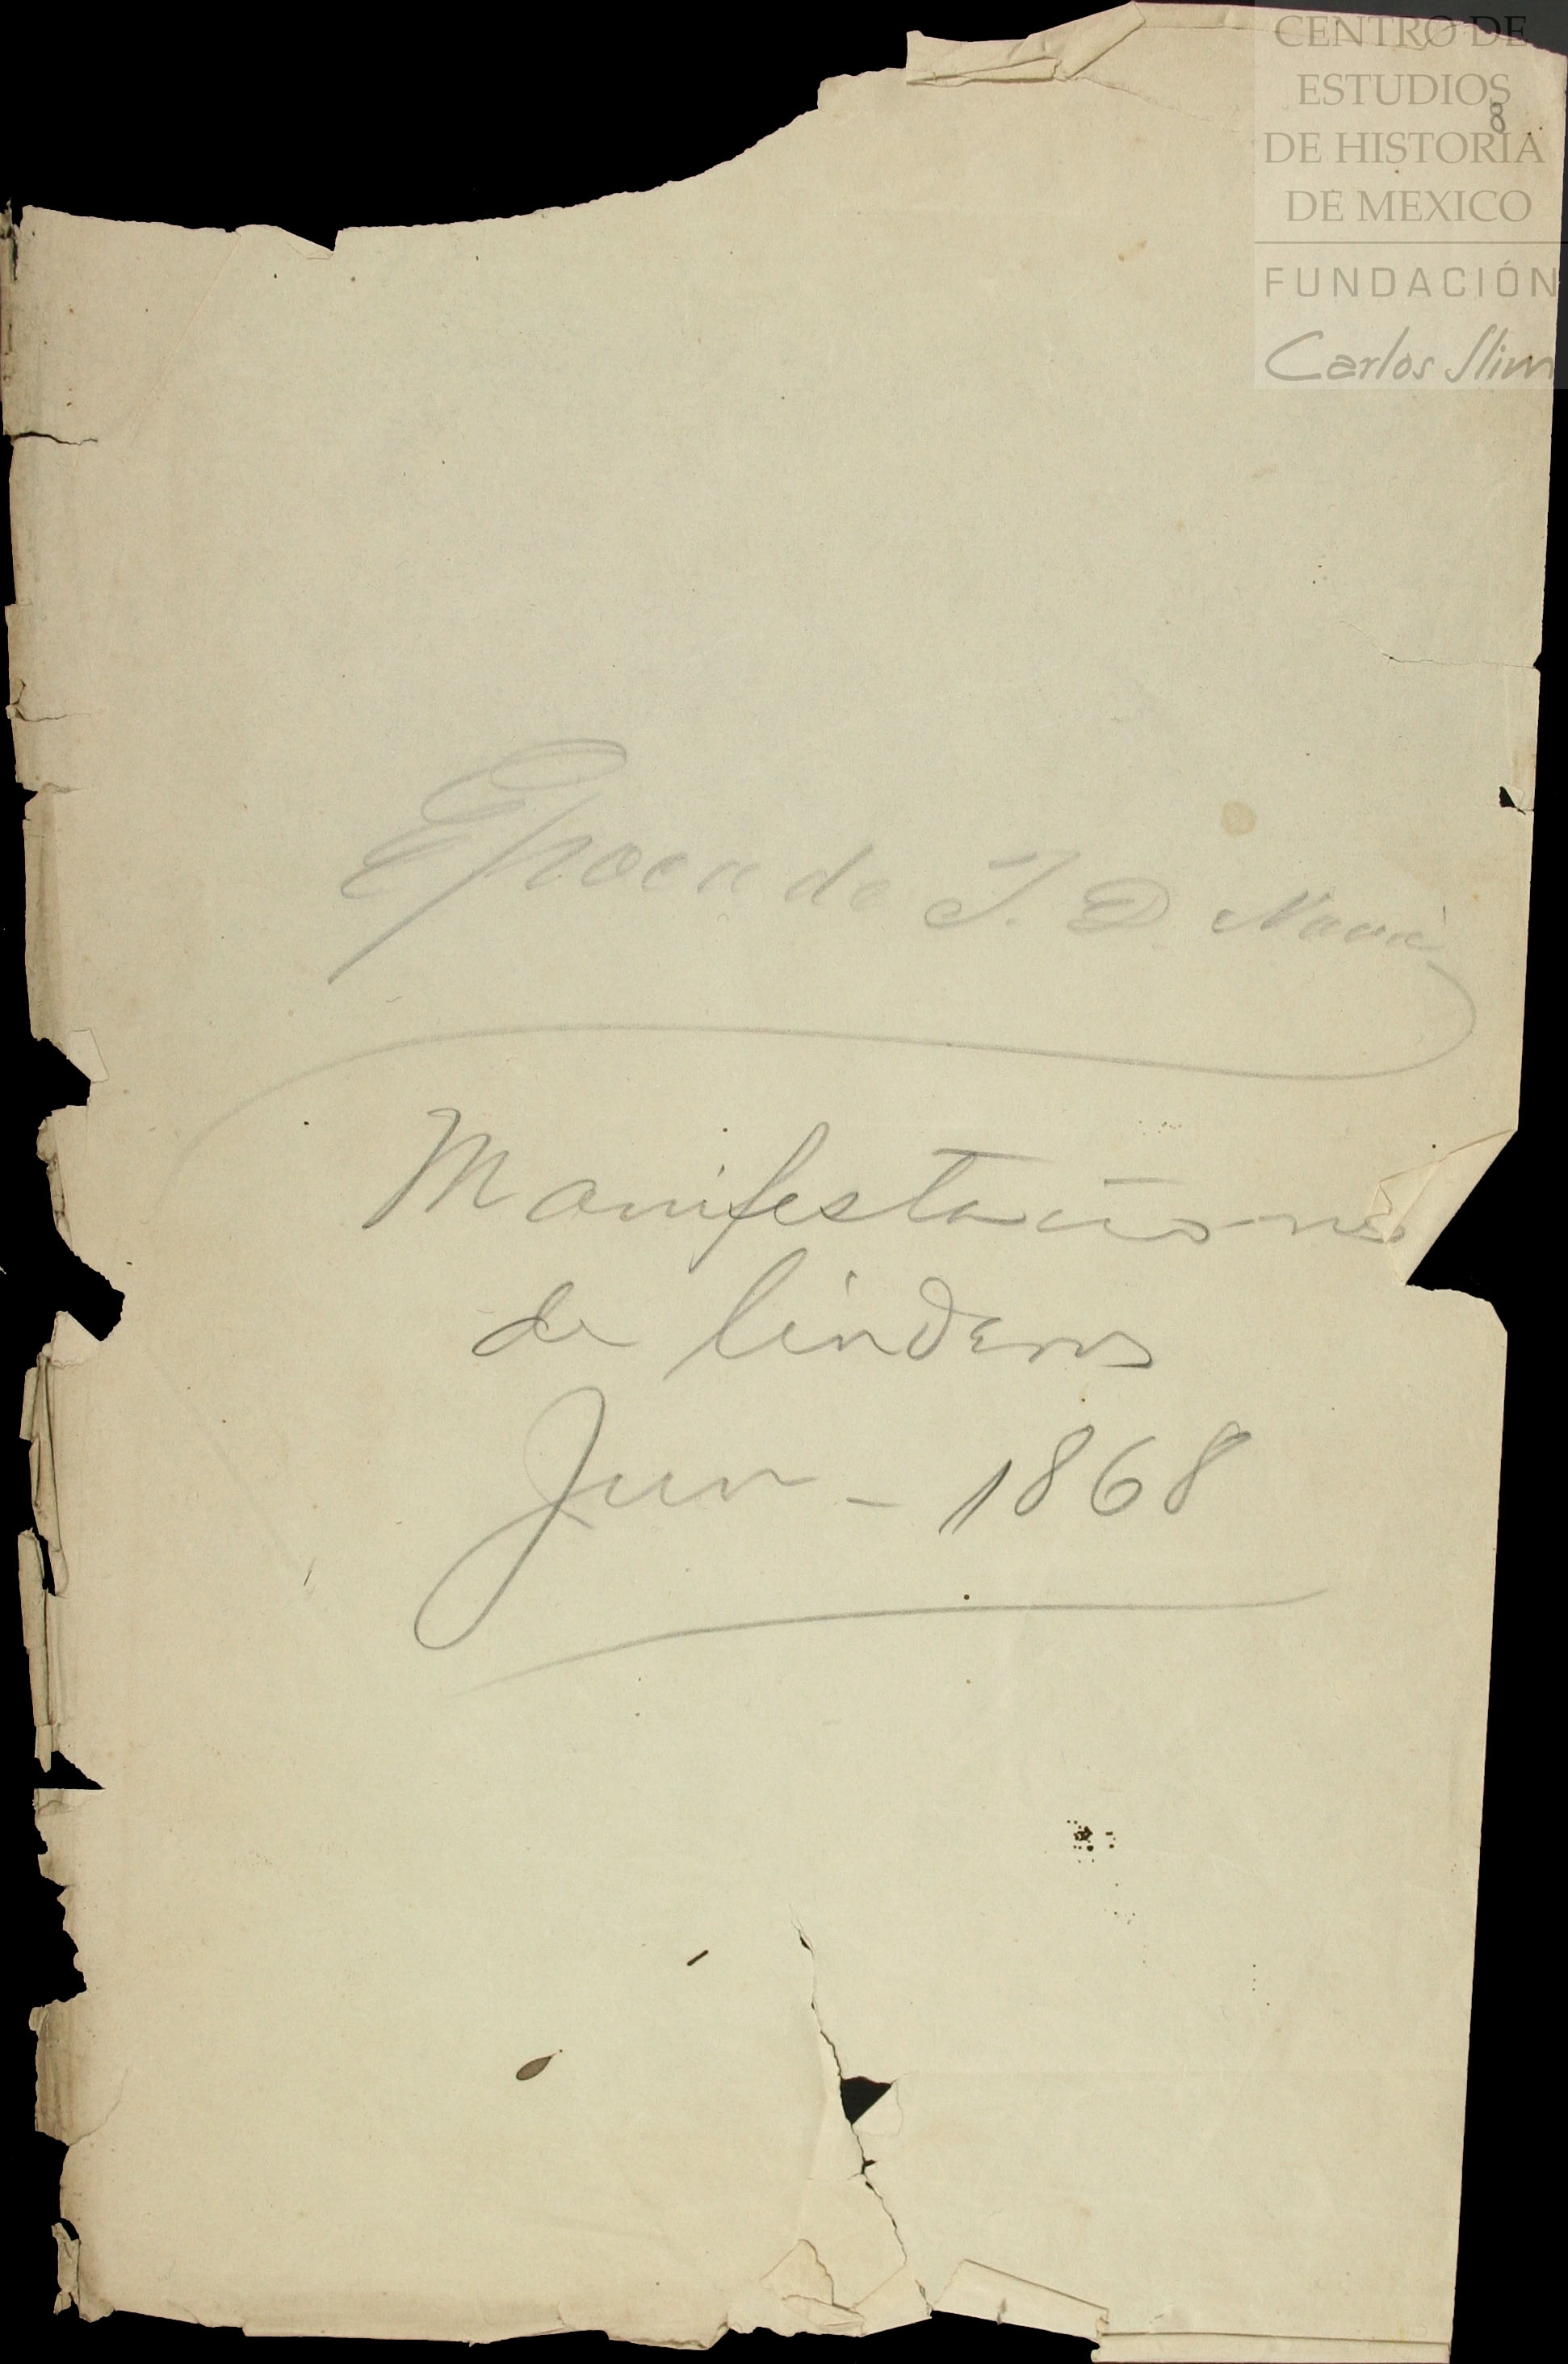 CENTRO DE
ESTUDIOS
8
DE HISTORIA
DE MEXICO
FUNDACIÓN
Carlos Slim
Epoca de J. D.
Manifestaciones
de linderos
Jun - 1868